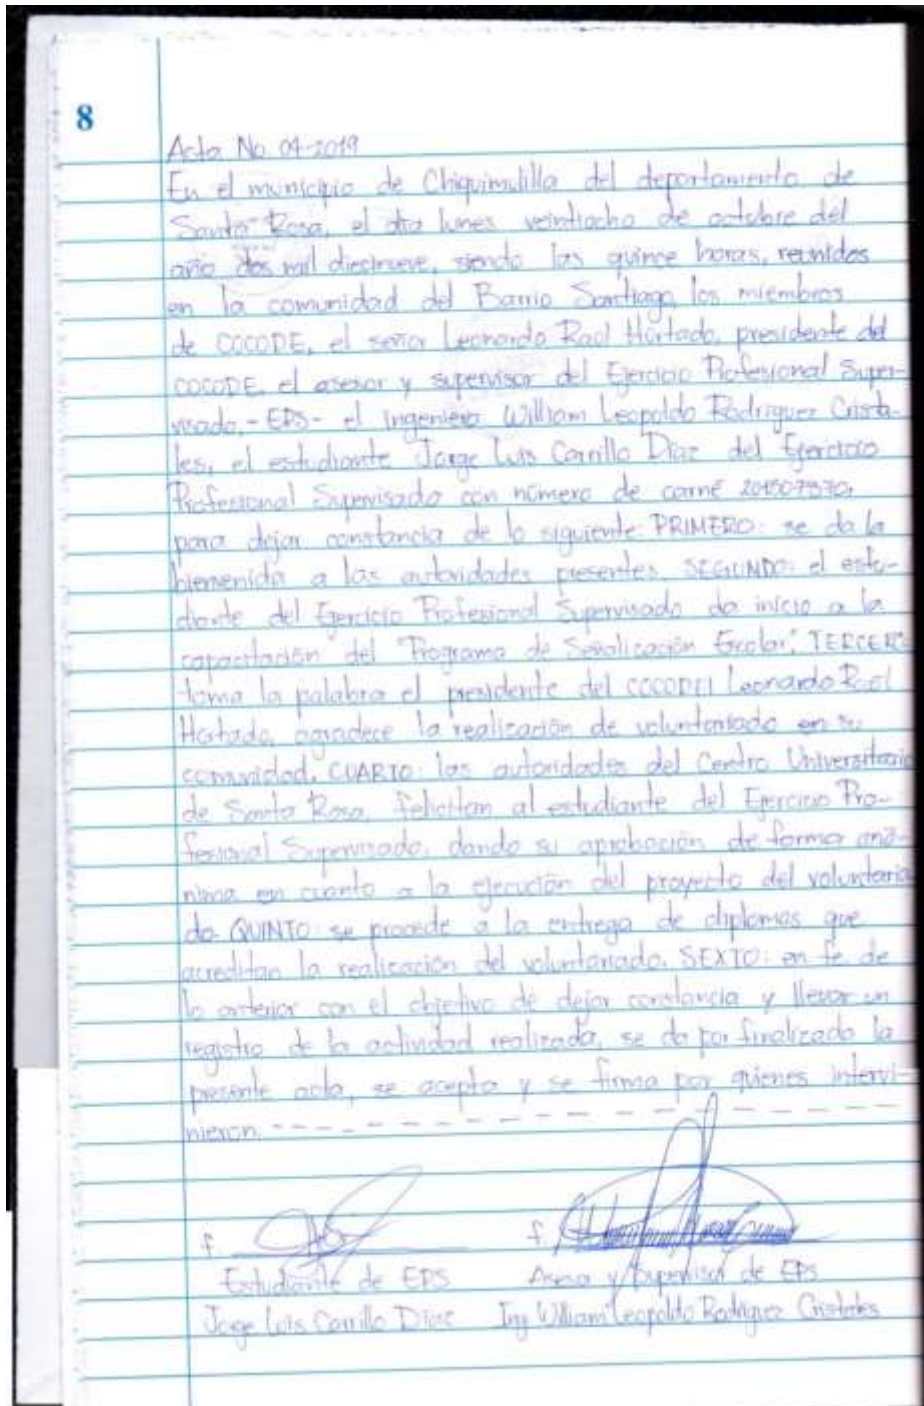 8
Acta No. 04-2019
En el municipio de Chiquimulilla del departamento de
Santa Rosa, el día lunes veintiocho de octubre del
año dos mil diecinueve, siendo las quince horas, reunidos
en la comunidad del Barrio Santiago, los miembros
de COCODE, el señor Leonardo Raúl Hurtado, presidente del
COCODE, el asesor y supervisor del Ejercicio Profesional Super-
visado,-EPS- el ingeniero William Leopoldo Rodríguez Crista-
les, el estudiante Jorge Luis Carrillo Díaz del Ejercicio
Profesional Supervisado con número de carné
para dejar constancia de lo siguiente PRIMERO: se da la
bienvenida a las autoridades presentes. SEGUNDO: el estu-
diante del Ejercicio Profesional Supervisado da inicio a la
capacitación del "Programa de Señalización Escolar", TERCERO
toma la palabra el presidente del COCODE Leonardo Raúl
Hurtado, agradece la realización de voluntariado en su
comunidad. CUARTO: las autoridades del Centro Universitario
de Santa Rosa, felicitan al estudiante del Ejercicio Pro-
fesional Supervisado, dando su aprobación de forma
en cuanto a la ejecución del proyecto del voluntaria
do. QUINTO: se procede a la entrega de diplomas que
acreditan la realización del voluntariado. SEXTO: en fe de
lo anterior con el objetivo de dejar constancia y llevar un
registro de la actividad realizada, se da por finalizado la
presente acta, se acepta y se firma por quienes intervi-
nieron.
f. f.
Estudiante de EPS Asesor y Supervisor de EPS
Jorge Luis Carrillo Díaz Ing William Leopoldo Rodríguez Cristales